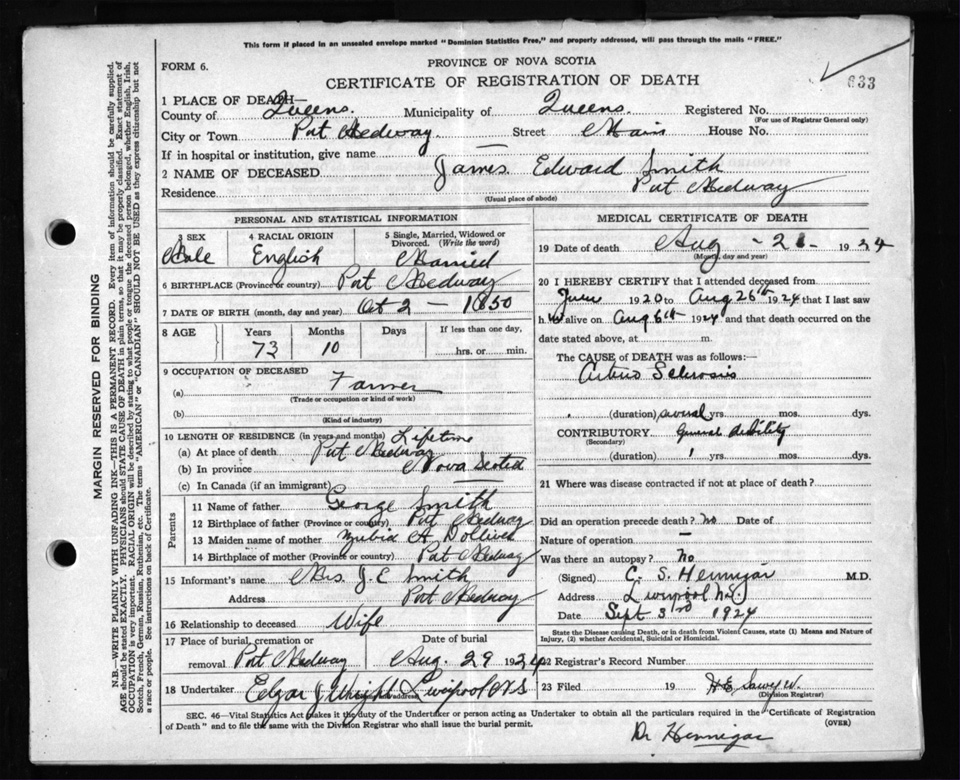 This form if placed in an unsealed envelope marked "Dominion Statistics Free," and properly addressed, will pass through the mails "FREE."
FORM 6.
PROVINCE OF NOVA SCOTIA
CERTIFICATE OF REGISTRATION OF DEATH
633
1 PLACE OF DEATH—
County of Queens. Municipality of Queens. Registered No.
(For use of Registrar General only)
City or Town Port Medway. Street Main House No.
If in hospital or institution, give name —
2 NAME OF DECEASED James Edward Smith
Residence Port Medway
(Usual place of abode)
PERSONAL AND STATISTICAL INFORMATION
3 SEX 4 RACIAL ORIGIN 5 Single, Married, Widowed or Divorced. (Write the word)
Male English Married
6 BIRTHPLACE (Province or country) Port Medway
7 DATE OF BIRTH (month, day and year) Oct 2 — 1850
8 AGE Years Months Days If less than one day,
73 10 hrs. or min.
9 OCCUPATION OF DECEASED
(a) Farmer
(Trade or occupation or kind of work)
(b)
(Kind of industry)
10 LENGTH OF RESIDENCE (in years and months) Lifetime
(a) At place of death Port Medway
(b) In province Nova Scotia
(c) In Canada (if an immigrant)
Parents
11 Name of father George Smith
12 Birthplace of father (Province or country) Port Medway
13 Maiden name of mother A Dolliver
14 Birthplace of mother (Province or country) Port Medway
15 Informant's name Mrs. J. E Smith
Address Port Medway
16 Relationship to deceased Wife
17 Place of burial, cremation or removal Port Medway
Date of burial Aug. 29 1924
18 Undertaker Edgar J Wright Liverpool N.S
MEDICAL CERTIFICATE OF DEATH
19 Date of death Aug - 1924
(Month, day and year)
20 I HEREBY CERTIFY that I attended deceased from
June 1920 to Aug 26th 1924 that I last saw
h alive on Aug 6th 1924 and that death occurred on the
date stated above, at m.
The CAUSE of DEATH was as follows:—
Arterio Sclerosis
(duration) several yrs. mos. dys.
CONTRIBUTORY General debility
(Secondary)
(duration) 1 yrs. mos. dys.
21 Where was disease contracted if not at place of death?
Did an operation precede death? no Date of
Nature of operation —
Was there an autopsy? No
(Signed) C. S. Hennigar M.D.
Address Liverpool N.S.
Date Sept 3rd 1924
State the Disease causing Death, or in death from Violent Causes, state (1) Means and Nature of Injury, (2) whether Accidental, Suicidal or Homicidal.
22 Registrar's Record Number
23 Filed 19
(Division Registrar)
SEC. 46—Vital Statistics Act makes it the duty of the Undertaker or person acting as Undertaker to obtain all the particulars required in the "Certificate of Registration
of Death" and to file the same with the Division Registrar who shall issue the burial permit. (OVER)
Dr Hennigar
MARGIN RESERVED FOR BINDING
N.B.—WRITE PLAINLY WITH UNFADING INK—THIS IS A PERMANENT RECORD. Every item of information should be carefully supplied.
AGE should be stated EXACTLY. PHYSICIANS should STATE CAUSE OF DEATH in plain terms, so that it may be properly classified. Exact statement of
OCCUPATION is very important. RACIAL ORIGIN will be described by stating to what people or tongue the deceased person belonged, whether English, Irish,
Scotch, French, German, Russian, Ruthenian, etc. The terms "AMERICAN" or "CANADIAN" SHOULD NOT BE USED as they express citizenship but not
a race or people. See instructions on back of Certificate.